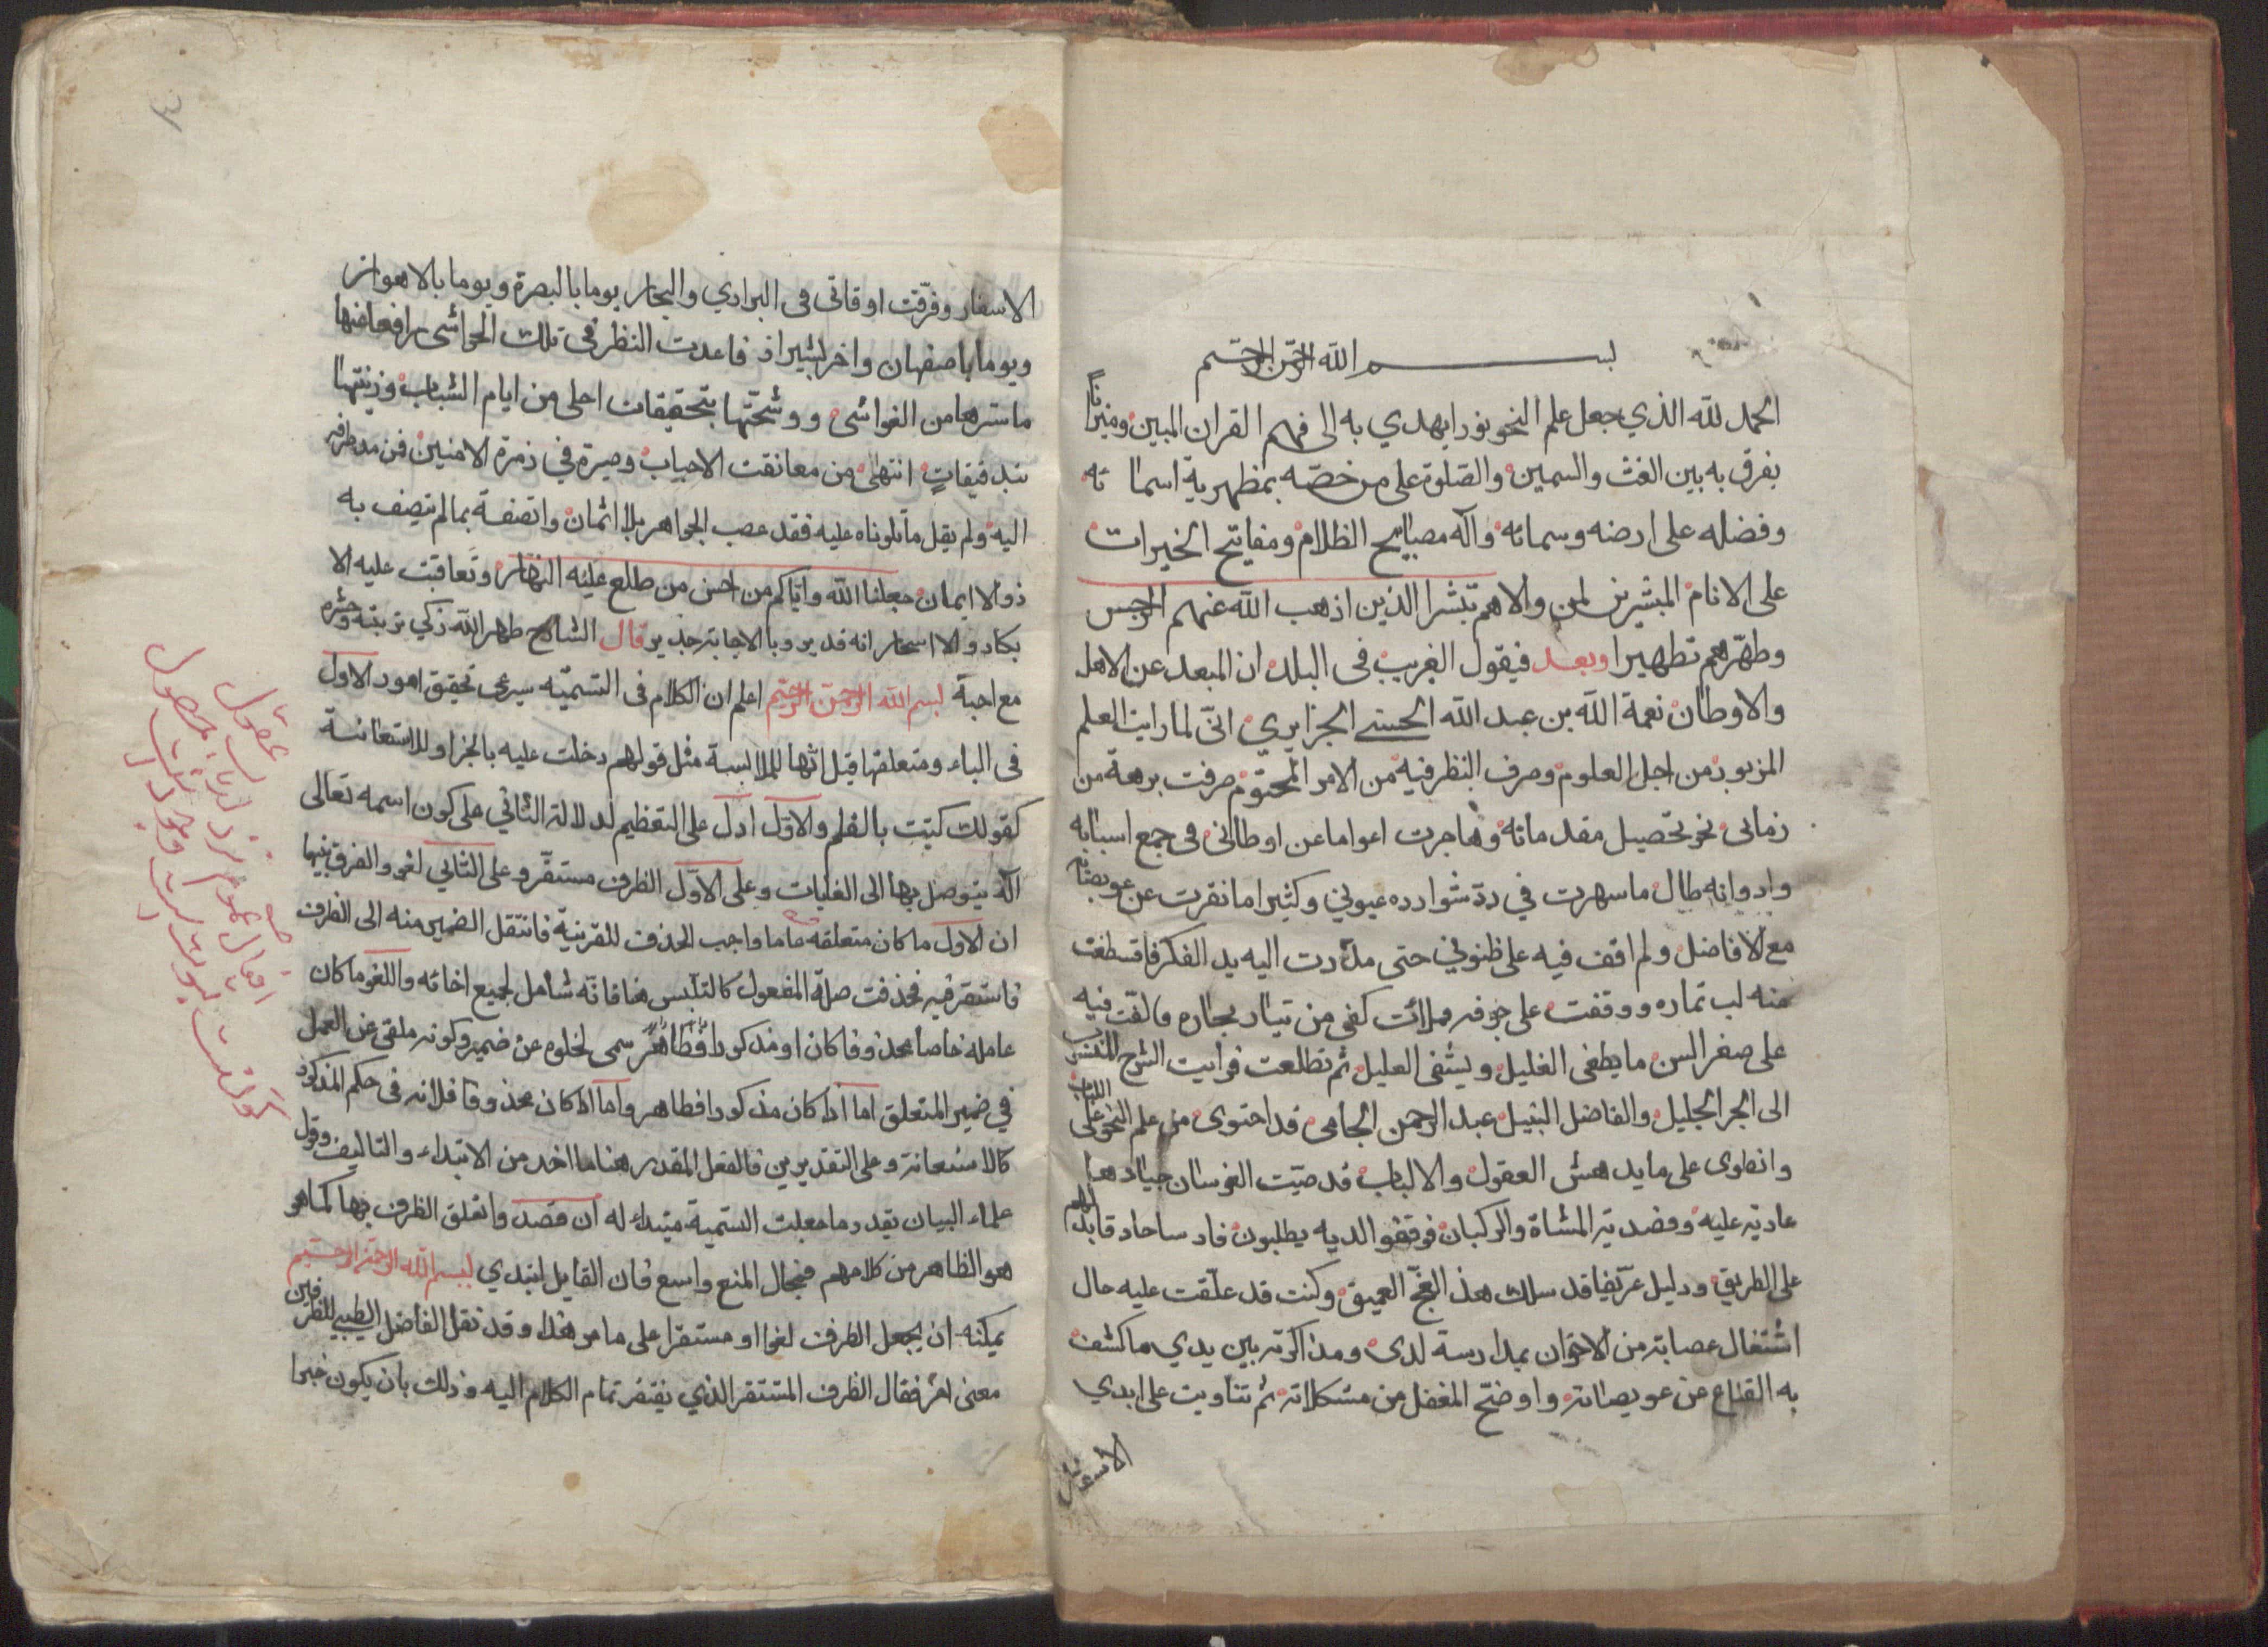 بسم الله الرحمن الرحيم
الحمد لله الذي جعل علم النحو نورا يهدي به الى فهم القران المبين وميزانا
يفرق به بين الغث والسمين والصلوة على من خصه بمظهرية اسمائه
وفضله على ارضه وسمائه وآله مصابيح الظلام ومفاتيح الخيرات
على الانام المبشرين لمن والاهم تبشرا الذين اذهب الله عنهم الرجس
وطهرهم تطهيرا وبعد فيقول الغريب في البلد ان المبعد عن الاهل
والاوطان نعمة الله بن عبد الله الحسيني الجزايري اني لما رايت العلم
المزبور من اجل العلوم وصرف النظر فيه من الامر المحتوم صرفت برهة من
زماني نحو تحصيل مقدماته وهاجرت اعواما عن اوطاني في جمع اسبابه
وادواته طال ما سهرت في رد شوارده عيوني وكثيرا ما نقرت عن عويصاته
مع الافاضل ولم اقف فيه على ظنوني حتى مددت اليه يد الفكر فاقتطفت
منه لب ثماره ووقفت على جرفه وملائت كفي من تيار بحاره والفت فيه
على صغر السن ما يطفي الغليل ويشفي العليل ثم تطلعت فرايت الشرح المنتسب
الى الحبر الجليل والفاضل النبيل عبد الرحمن الجامي قد احتوى من علم النحو على اللباب
وانطوى على ما يدهش العقول والالباب قد صيت الفرسان جيادها
عاديه عليه وقصدته المشاة والركبان فوقفوا لديه يطلبون فارسا حاد قا يدلهم
على الطريق ودليل عريفا قد سلك هذ الفج العميق وكنت قد علقت عليه حال
اشتغال عصابة من الاخوان بمدارسة لدي ومذاكرته بين يدي ما كشف
به القناع عن عويصاته واوضح المغفل من مشكلاته ثم تناوبت على ايدي
الاسفار
الاسفار وفرقت اوقاتي في البراري والبحار يوما بالبصرة ويوما بالاهواز
ويوما باصفهان واخر بشيراز فاعدت النظر في تلك الحواشي رافعا عنها
ما سترها من الغواشي ووشحتها بتحقيقات احلى من ايام الشباب وزينتها
بتدقيقات انتهى من معانقت الاحباب وصيرة في زمرة الامنين فمن مد طرفه
اليه ولم يقل ما تلوناه عليه فقد غصب الجواهر بلا اثمان واتصفة بما لم يتصف به
ذوالا ايمان جعلنا الله واياكم من احسن من طلع عليه النهار وتعاقبت عليه الا
بكار والا اسحار انه قدير وبالاجابة جدير قال الشارح طهر الله زكي تربته وحشره
مع احبة بسم الله الرحمن الرحيم اعلم ان الكلام في التسميه يستدعي تحقيق امور الاول
في الباء ومتعلقها قيل انها للملابسة مثل قولهم دخلت عليه بالخبز او للاستعانة
كقولك كتبت بالقلم والاول ادل على التعظيم لدلالة الثاني على كون اسمه تعالى
آلة يتوصل بها الى الغايات وعلى الاول الظرف مستقر وعلى الثاني لغو والفرق بينهما
ان الاول ما كان متعلقه عاما واجب الحذف للقرينة فانتقل الضمير منه الى الظرف
فاستقر فيه فحذفت صلة المفعول كالتلبس هنا فانه شامل لجميع اخاته واللغو ما كان
عامله خاصا محذوفا كان او مذكورا سمي لخلوه عن ضمير وكونه ملغى عن العمل
في ضمير المتعلق اما اذا كان مذكورا فظاهر واما اذا كان محذوفا فلانه في حكم المذكور
كالاستعانة وعلى التقديرين فالفعل المقدر هنا ما اخذ من الابتداء والتاليف وقول
علماء البيان يقدر ما جعلت التسمية مبتداء له ان قصد وا تعلق الظرف بها كما هو
هو الظاهر من كلامهم فمجال المنع واسع فان القايل ابتدي بسم الله الرحمن الرحيم
يمكنه ان يجعل الظرف لغوا او مستقرا على ما مر هذا وقد نقل الفاضل الطيبي للظرفين
معنى اخر فقال الظرف المستقر الذي يفتقر تمام الكلام اليه وذلك بان يكون خبرا